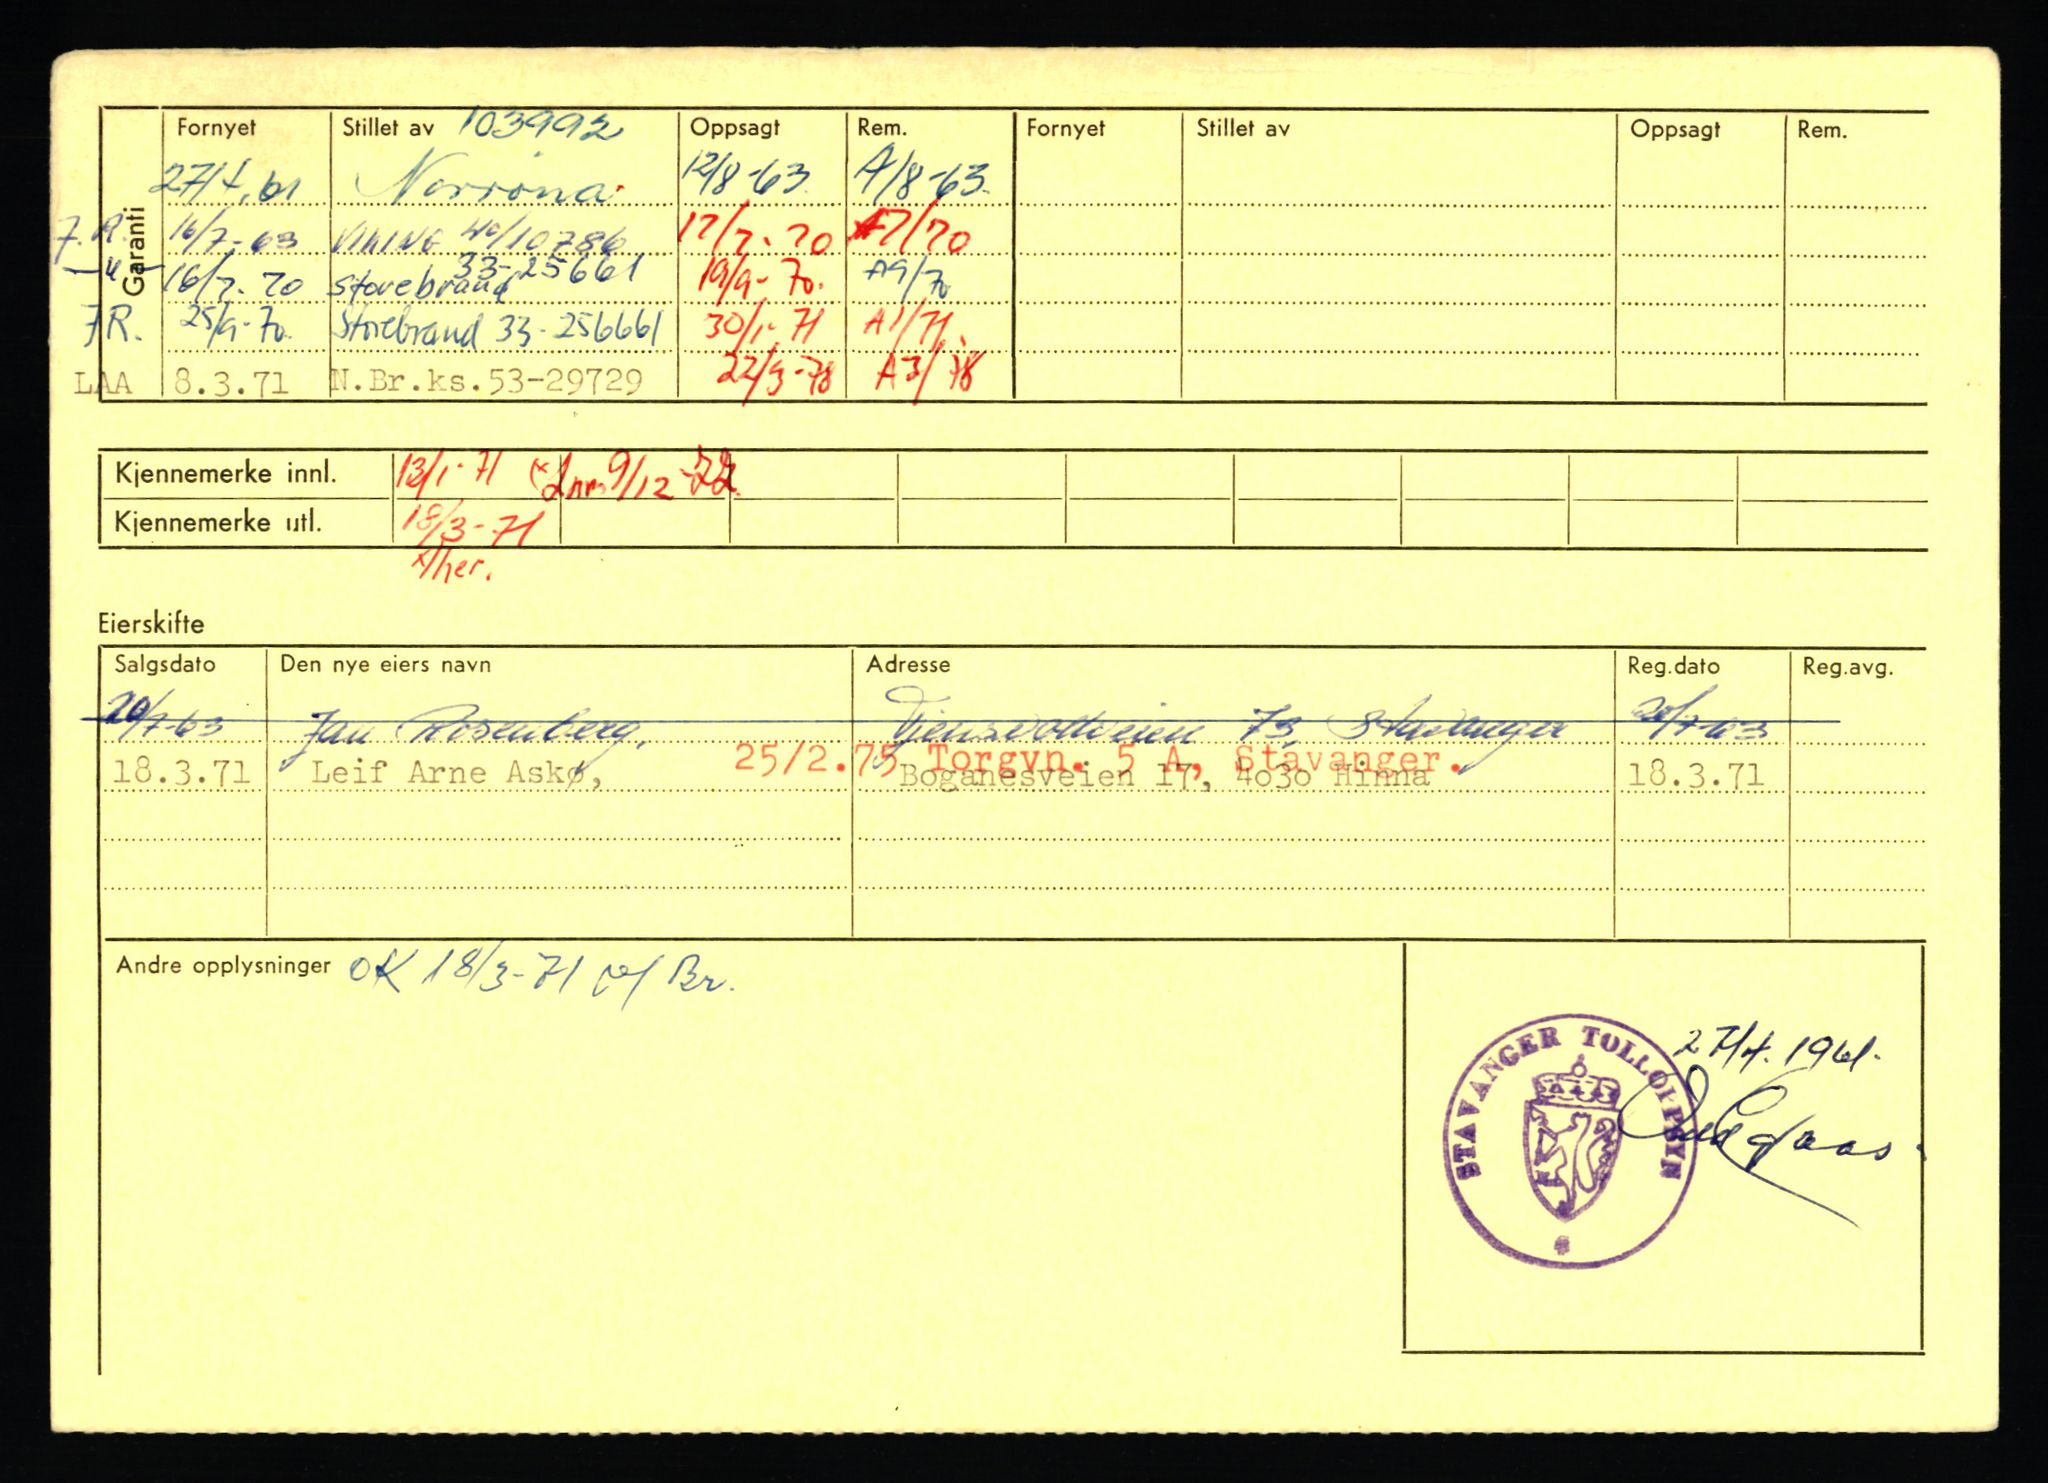 Garanti
Fornyet Stillet av 103992 Oppsagt Rem. Fornyet Stillet av Oppsagt Rem.
27/4.61 Norrøna. 12/8-63. A/8-63.
J.R. 16/7-63 VIKING 40/10786 17/7-70 A7/70
—"— 16/7-70 Storebrand 33-25661 19/9-70. A9/70
JR. 25/9-70. Storebrand 33-256661 30/1-71 A1/71.
LAA 8.3.71 N.Br.ks.53-29729 22/3-78 A3/78
Kjennemerke innl. 13/1-71 9/12-72.
Kjennemerke utl. 18/3-71
x/her.
Eierskifte
Salgsdato Den nye eiers navn Adresse Reg.dato Reg.avg.
20/7-63 Jan Rosenberg, 73, Stavanger 20/7-63
25/2.75 Torgvn. 5 A, Stavanger.
18.3.71 Leif Arne Askø, Boganesveien 17, 4030 Hinna 18.3.71
Andre opplysninger OK 18/3-71 Br.
STAVANGER TOLLOPPSYN
27/4.1961.